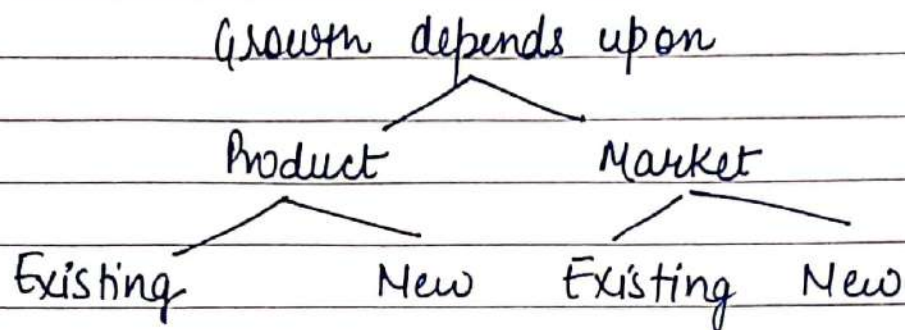 Growth depends upon
Product Market
Existing New Existing New